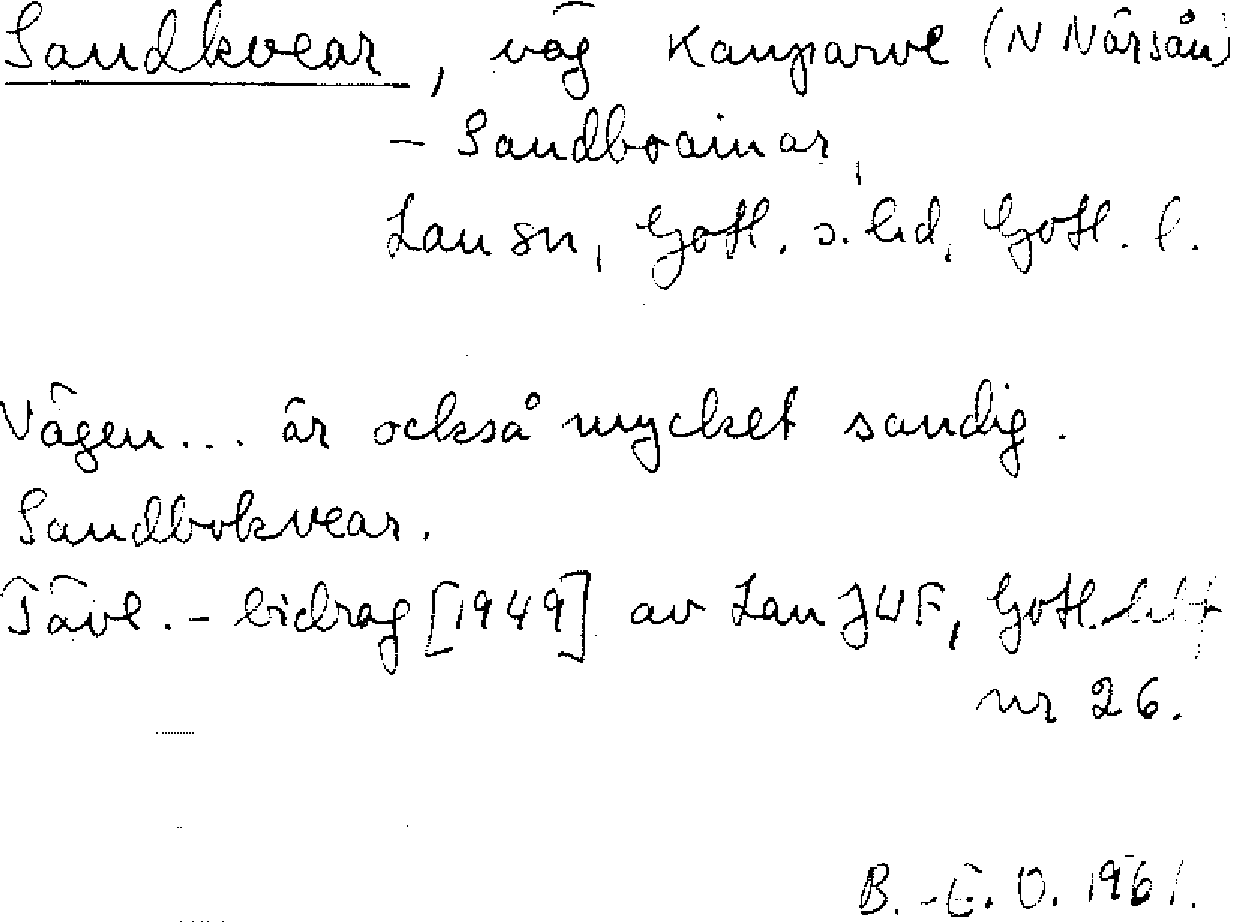 Sandkvear, väg Kauparve (N Närsån)
– Sandbrainar,
Lau sn, Gotl. s. hd, Gotl. l.
Vägen... är också mycket sandig.
Sandbokvear.
Tävl.-bidrag [1949] av Lau JUF, Gotl.
nr 26.
B.-E. O. 1961.